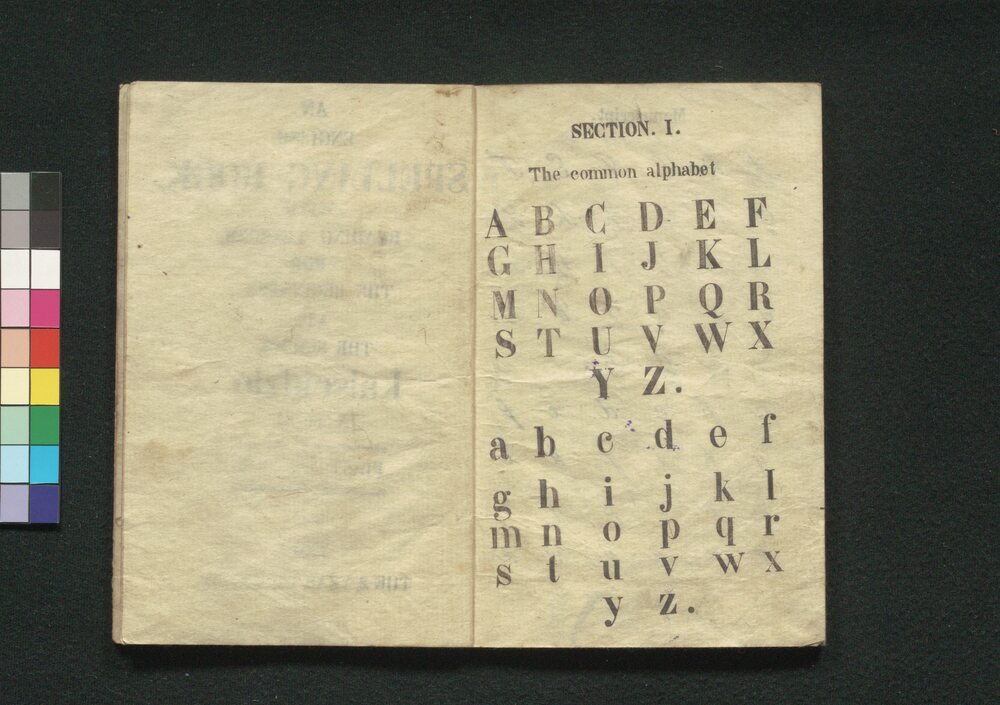 SECTION. I.
The common alphabet
A B C D E F
G H I J K L
M N O P Q R
S T U V W X
Y Z.
a b c d e f
g h i j k l
m n o p q r
s t u v w x
y z.